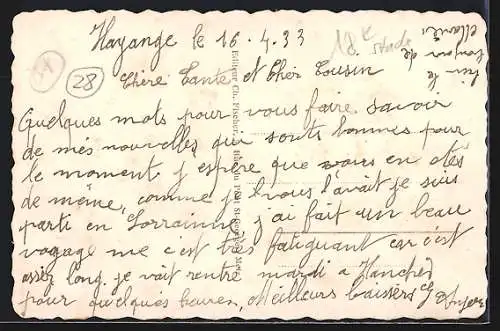 Hayange le 16.4.33
18e
stade
A
28
Chère Tante et Cher Cousin
Quelques mots pour vous faire savoir
de més nouvelles qui sonts bonnes pour
le moment j'espère que vous en etes
de même, comme je vous l'avait je suis
parti en Lorrainne j'ai fait un beau
voyage me c'est très fatiguant car c'est
assez long. je vait rentré mardi a
pour quelques heures, Meilleurs baissers
bonjour de
Editeur Ch. Fischer